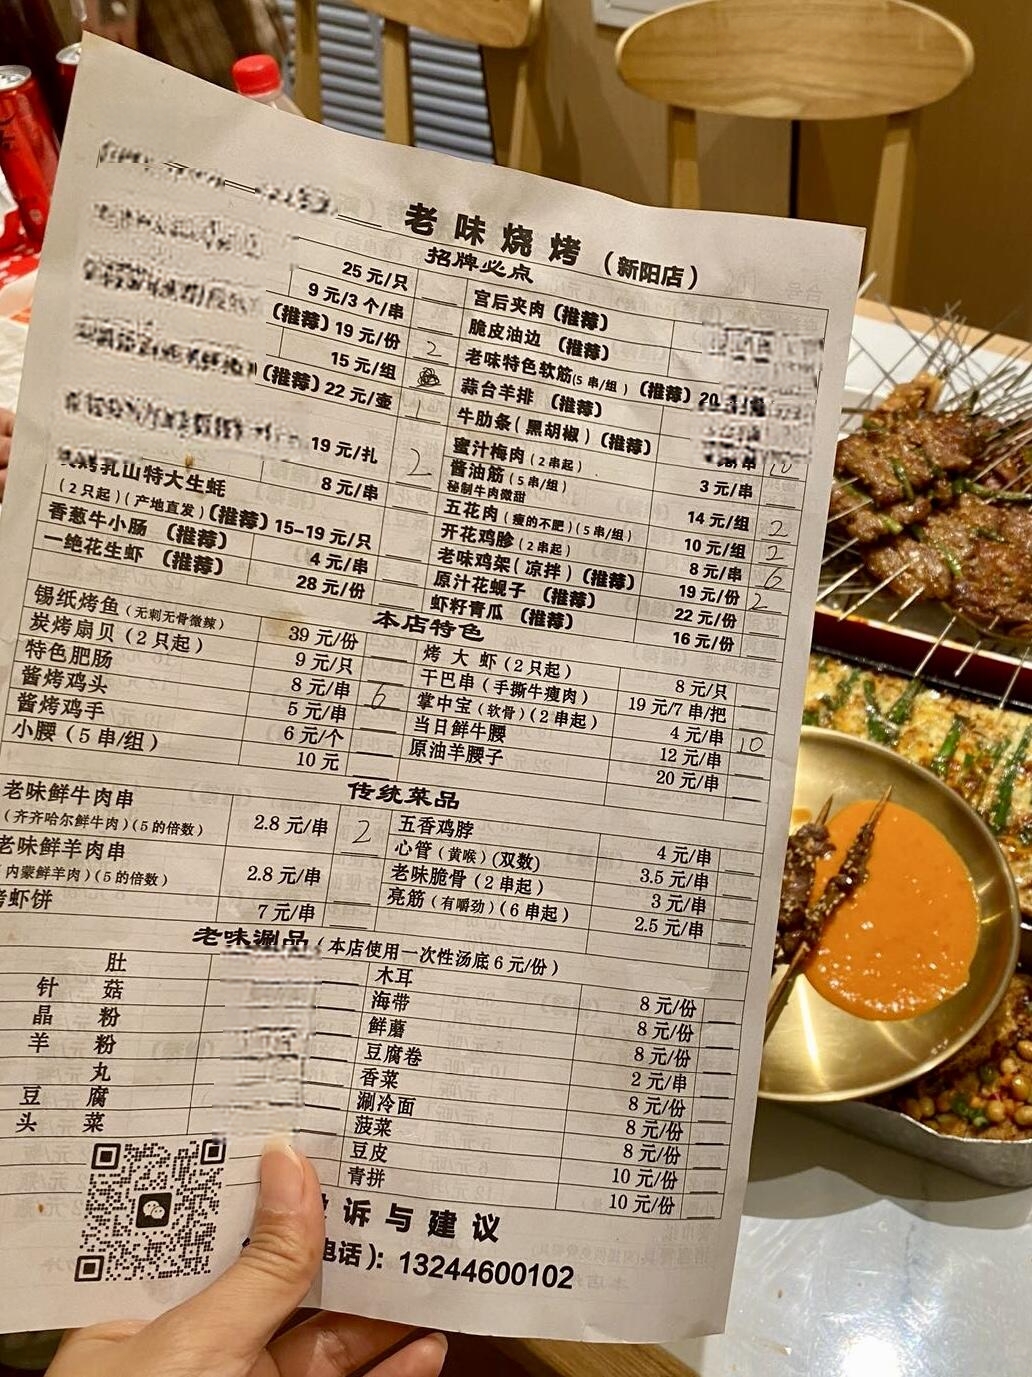 老味烧烤（新阳店）
招牌必点
25 元/只
9 元/3 个/串
（推荐）19 元/份 2
15 元/组
（推荐）22 元/壶
19 元/扎 2
8 元/串
烤乳山特大生蚝
（2 只起）（产地直发）（推荐）15-19 元/只
香葱牛小肠（推荐） 4 元/串
一绝花生虾（推荐） 28 元/份
宫后夹肉（推荐）
脆皮油边（推荐）
老味特色软筋（5 串/组）（推荐）20
蒜台羊排（推荐）
牛肋条（黑胡椒）（推荐）
蜜汁梅肉（2 串起） 3 元/串 10
酱油筋（5 串/组）
秘制牛肉微甜 14 元/组 2
五花肉（瘦的不肥）（5 串/组） 10 元/组 2
开花鸡胗（2 串起） 8 元/串 6
老味鸡架（凉拌）（推荐） 19 元/份 2
原汁花蚬子（推荐） 22 元/份
虾籽青瓜（推荐） 16 元/份
本店特色
锡纸烤鱼（无刺无骨微辣） 39 元/份
炭烤扇贝（2 只起） 9 元/只
特色肥肠 8 元/串 6
酱烤鸡头 5 元/串
酱烤鸡手 6 元/个
小腰（5 串/组） 10 元
烤大虾（2 只起） 8 元/只
干巴串（手撕牛瘦肉） 19 元/7 串/把
掌中宝（软骨）（2 串起） 4 元/串 10
当日鲜牛腰 12 元/串
原油羊腰子 20 元/串
传统菜品
老味鲜牛肉串
（齐齐哈尔鲜牛肉）（5 的倍数） 2.8 元/串 2
老味鲜羊肉串
（内蒙鲜羊肉）（5 的倍数） 2.8 元/串
烤虾饼 7 元/串
五香鸡脖 4 元/串
心管（黄喉）（双数） 3.5 元/串
老味脆骨（2 串起） 3 元/串
亮筋（有嚼劲）（6 串起） 2.5 元/串
老味涮品（本店使用一次性汤底 6 元/份）
肚
针 菇
晶 粉
羊 粉
丸
豆 腐
头 菜
木耳 8 元/份
海带 8 元/份
鲜蘑 8 元/份
豆腐卷 2 元/串
香菜 8 元/份
涮冷面 8 元/份
菠菜 8 元/份
豆皮 10 元/份
青拼 10 元/份
诉与建议
电话）：13244600102